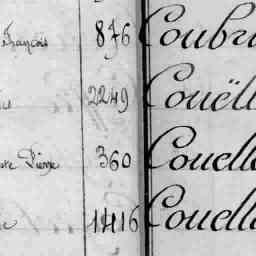 François 876 Coubr
2249 Couëll
Pierre 360 Couelle
1416 Couelle